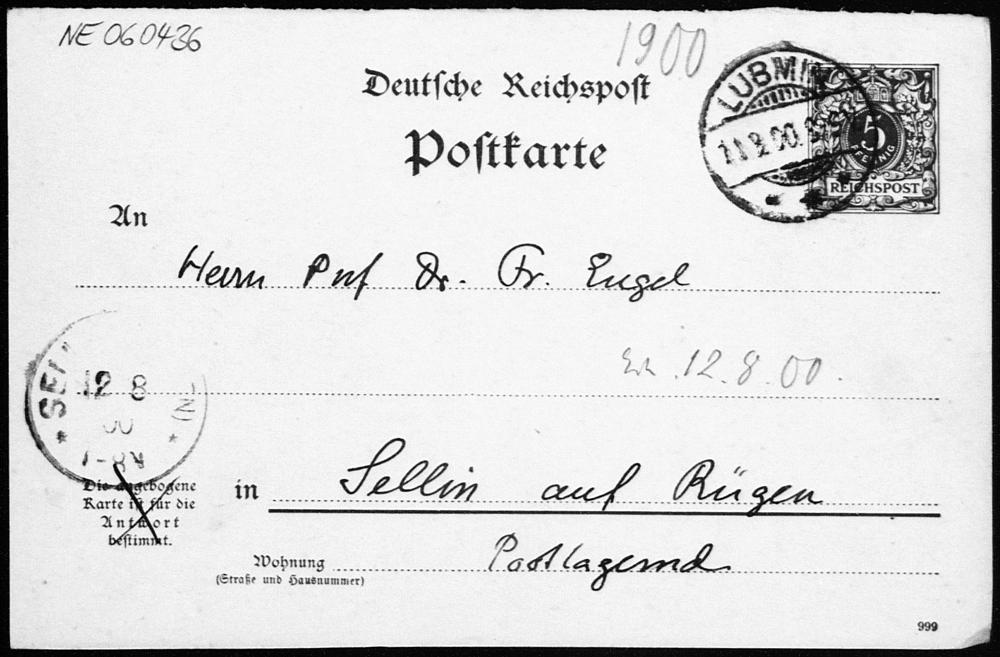 NE 060436
1900
Deutsche Reichspost
Postkarte
LUBMIN
5
PFENNIG
REICHSPOST
An
Herrn Prof Dr. Fr. Engel
12.8.00.
12 8
Sellin auf Rügen
in
Die angebogene
Karte ist für die
Antwort
bestimmt.
Postlagernd
Wohnung
(Straße und Hausnummer)
999